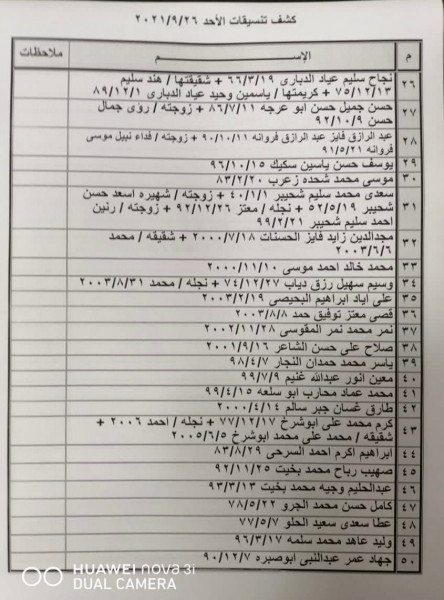 كشف تنسيقات الأحد ٢٠٢١/٩/٢٦
م الإســـــــــم ملاحظات
٢٦ نجاح سليم عياد الدبارى ٦٦/٣/١٩ + شقيقتها / هند سليم
٧٥/١٢/١٣ + كريمتها / ياسمين وحيد عياد الدبارى ٨٩/١٢/١
٢٧ حسن جميل حسن ابو عرجه ٨٦/٧/١١ + زوجته / رؤى جمال
حسن ٩٢/١٠/٩
٢٨ عبد الرازق فايز عبد الرازق فروانه ٩٠/١٠/١١ + زوجته / فداء نبيل موسى
فروانه ٩١/٥/٢١
٢٩ يوسف حسن ياسين سكيك ٩٦/١٠/١٥
٣٠ موسى محمد شحده زعرب ٨٣/٢/٢٠
٣١ سعدى محمد سليم شحيبر ٤٠/١/١ + زوجته / شهيره اسعد حسن
شحيبر ٥٢/٥/١٩ + نجله / معتز ٩٢/١٢/٢٦ + زوجته / رنين
احمد سليم شحيبر ٩٩/٢/٢١
٣٢ مجدالدين زايد فايز الحسنات ٢٠٠٠/٧/١٨ + شقيقه / محمد
٢٠٠٣/٦/٦
٣٣ محمد خالد احمد موسى ٢٠٠٠/١١/١٠
٣٤ وسيم سهيل رزق دياب ٧٤/١٢/٢٧ + نجله / محمد ٢٠٠٣/٨/٣١
٣٥ على اياد ابراهيم البحيصى ٢٠٠٣/٢/١٩
٣٦ قصى معتز توفيق حمد ٢٠٠٣/٨/٨
٣٧ نمر محمد نمر المقوسى ٢٠٠٢/١١/٢٨
٣٨ صلاح على حسن الشاعر ٢٠٠١/٩/١٦
٣٩ ياسر محمد حمدان النجار ٩٨/٤/٧
٤٠ معين انور عبدالله غنيم ٩٩/٧/٩
٤١ محمد عماد محارب ابو سلعه ٩٩/٤/١٥
٤٢ طارق غسان جبر سالم ٢٠٠٠/٤/١٤
٤٣ كرم محمد على ابوشرخ ٧٧/١٢/١٧ + نجله / احمد ٢٠٠٦ +
شقيقه / محمد على محمد ابوشرخ ٢٠٠٥/٦/٥
٤٤ ابراهيم اكرم احمد السرحى ٨٣/٨/٢٩
٤٥ صهيب رباح محمد بخيت ٩٢/١١/٢٥
٤٦ عبدالحليم وجيه محمد بخيت ٩٣/٣/١٣
٤٧ كامل حسن محمد الجرو ٧٨/٥/٢٢
٤٨ عطا سعدى سعيد الحلو ٧٧/٥/٧
٤٩ وليد عاهد محمد سلمه ٩٦/٣/١٧
٥٠ جهاد عمر عبدالنبى ابوصبره ٩٠/١٢/٧
HUAWEI nova 3i
DUAL CAMERA